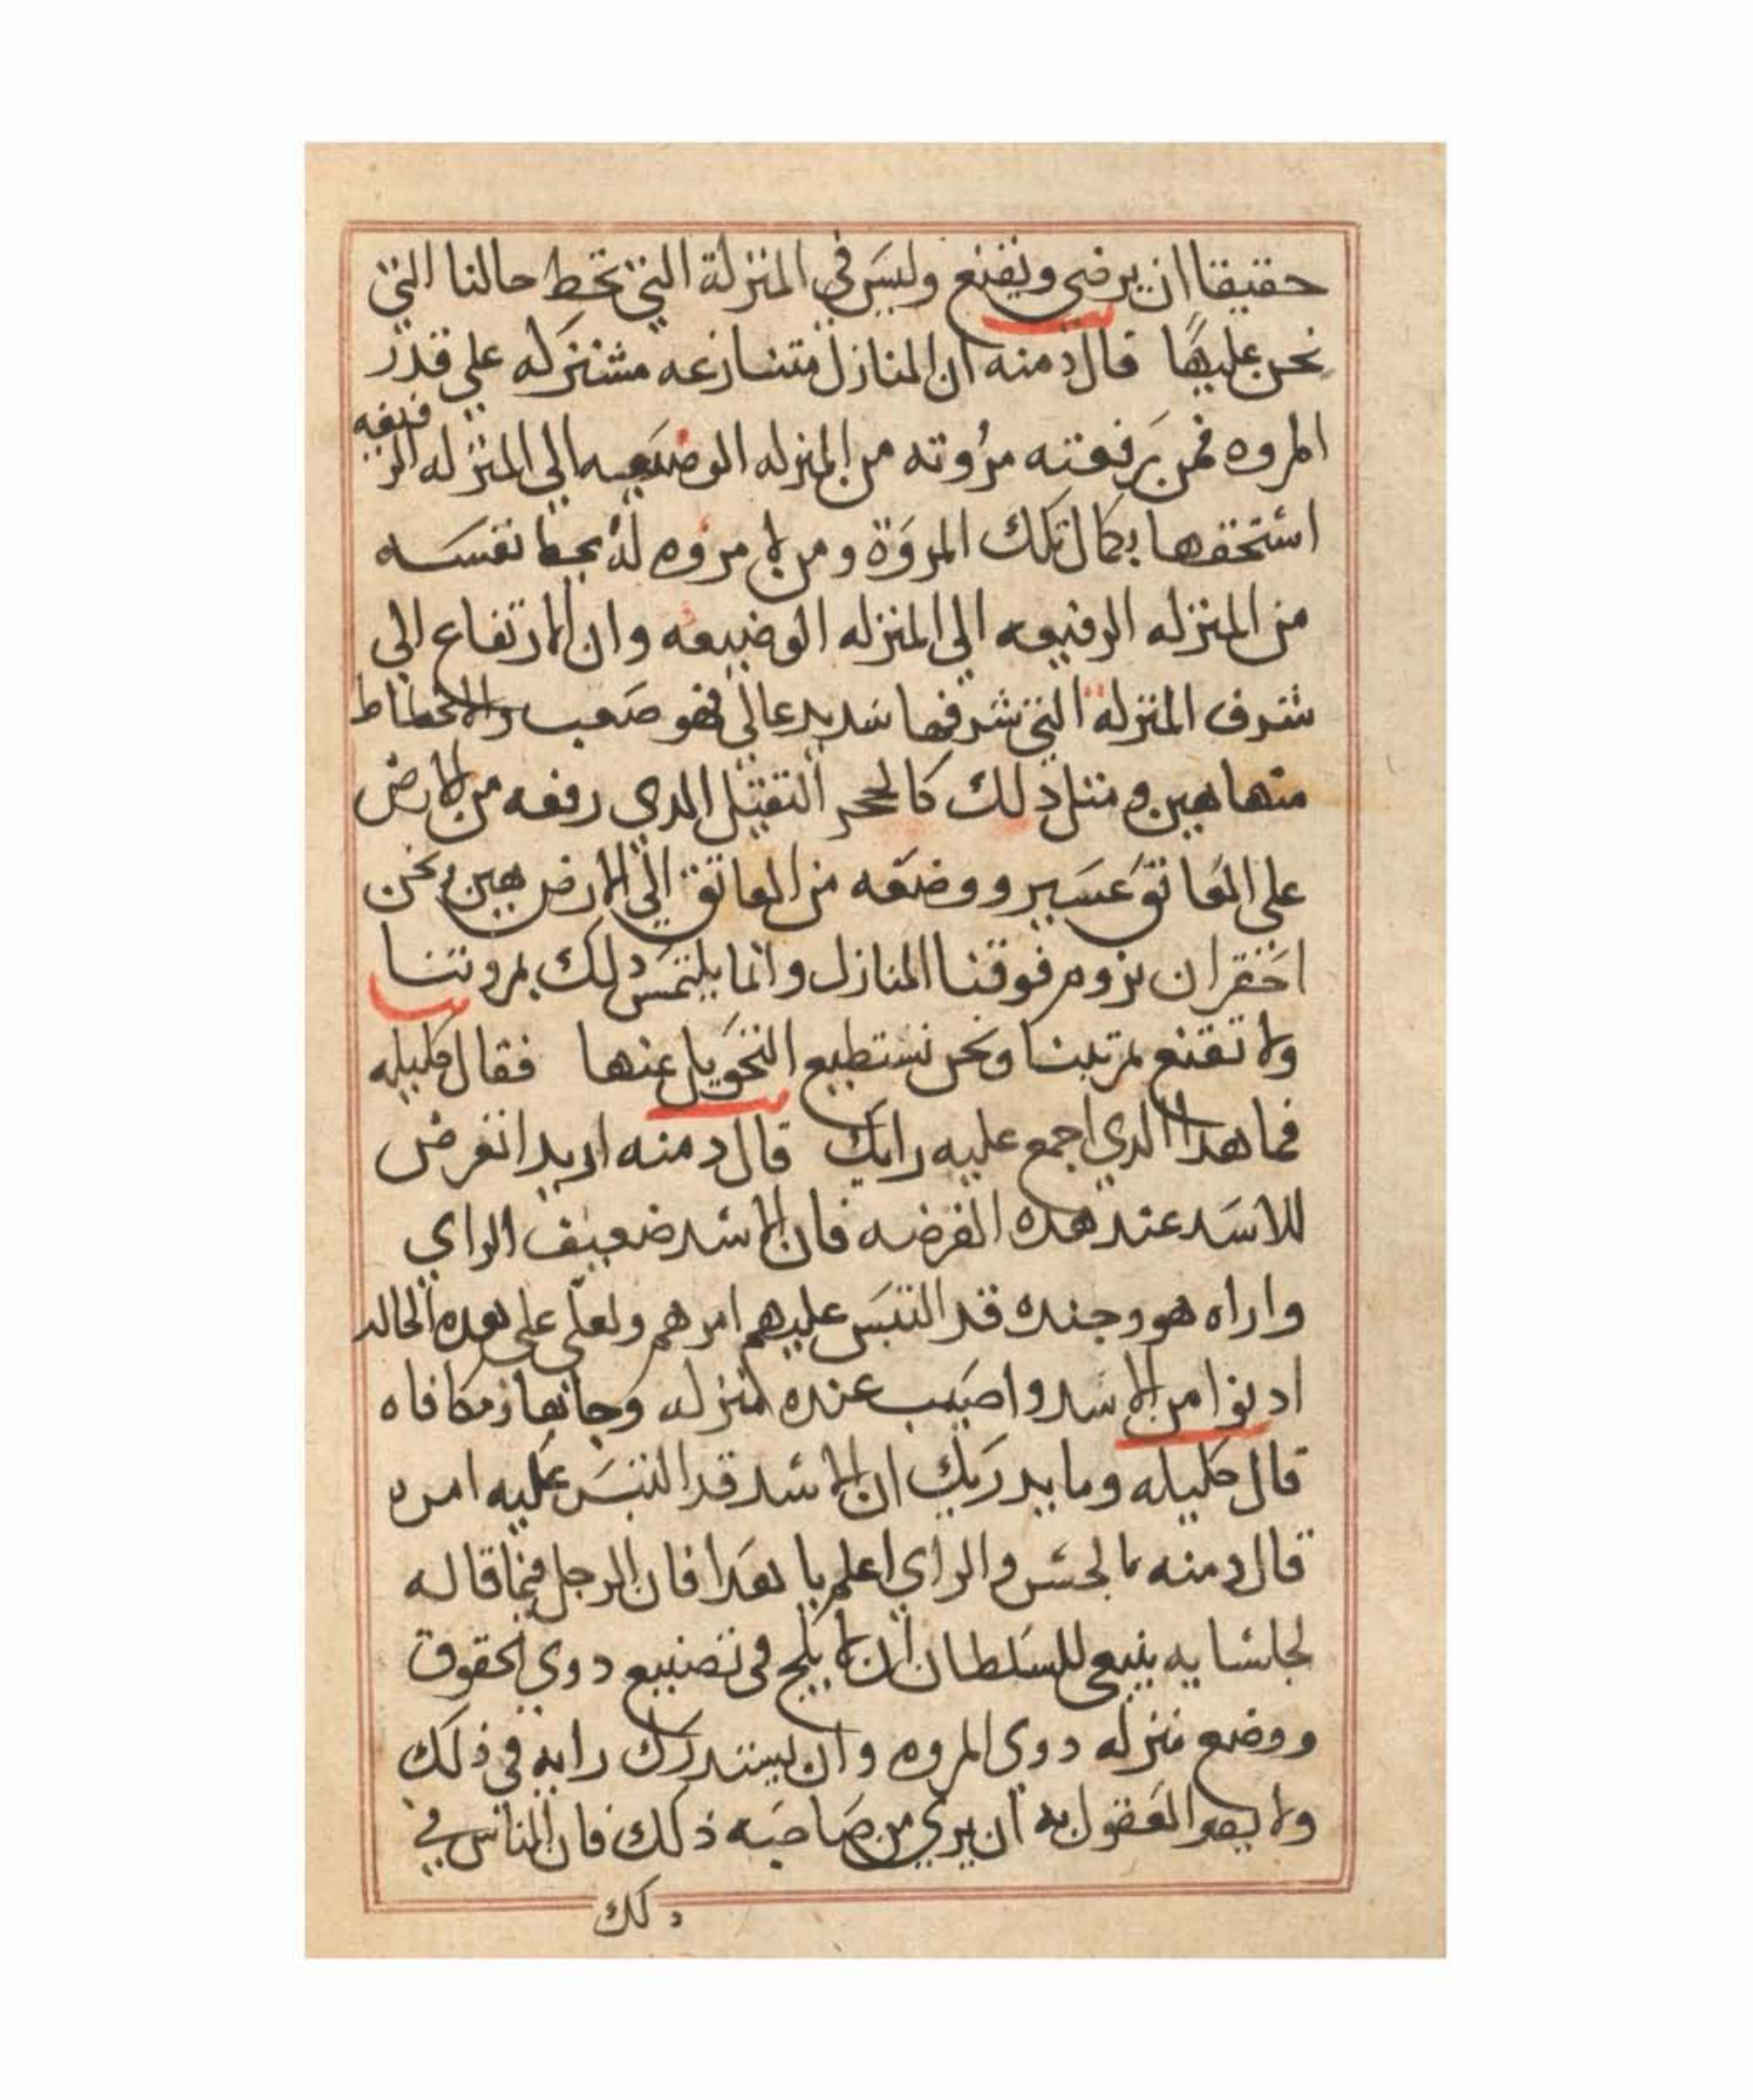 حقيقا ان يرضي ويقنع وليس في المنزلة التي تحط حالنا التي
نحن عليها قال دمنه ان المنازل متنازعه مشتركه علي قدر
المروه فمن رفعته مروته من المنزله الوضيعه الي المنزله الرفيعه
استحقها بكمال تلك المروة ومن لا مروه له يحط نفسه
من المنزله الرفيعه الي المنزله الوضيعه وان الارتفاع الي
شرف المنزلة التي شرفها شديد عالي فهو صعب والانحطاط
منها هين ومثل دلك كالحجر الثقيل الدي رفعه من الارض
على العاتق عسير ووضعه من العاتق الي الارض هين ونحن
احق ان نروم فوقنا المنازل وانما يلتمس دلك بمروتنا
ولا نقنع بمرتبتنا ونحن نستطيع التحويل عنها فقال كليله
فما هدا الدي اجمع عليه رايك قال دمنه اريد اتعرض
للاسد عند هده الفرصه فان الاسد ضعيف الراي
واراه هو وجنده قد التبس عليهم امرهم ولعلي علي هده الحاله
ادنوا من الاسد واصيب عنده منزله وجاها ومكافاه
قال كليله وما يدريك ان الاسد قد التبس عليه امره
قال دمنه بالحس والراي اعلم يا هدا فان الرجل فيما قاله
لجلسايه ينبغي للسلطان ان لا يلج في تضييع دوي الحقوق
ووضع منزله دوي المروه وان يستدرك رايه في ذلك
ولا العقول به ان يري من صاحبه ذلك فان الناس في
دلك